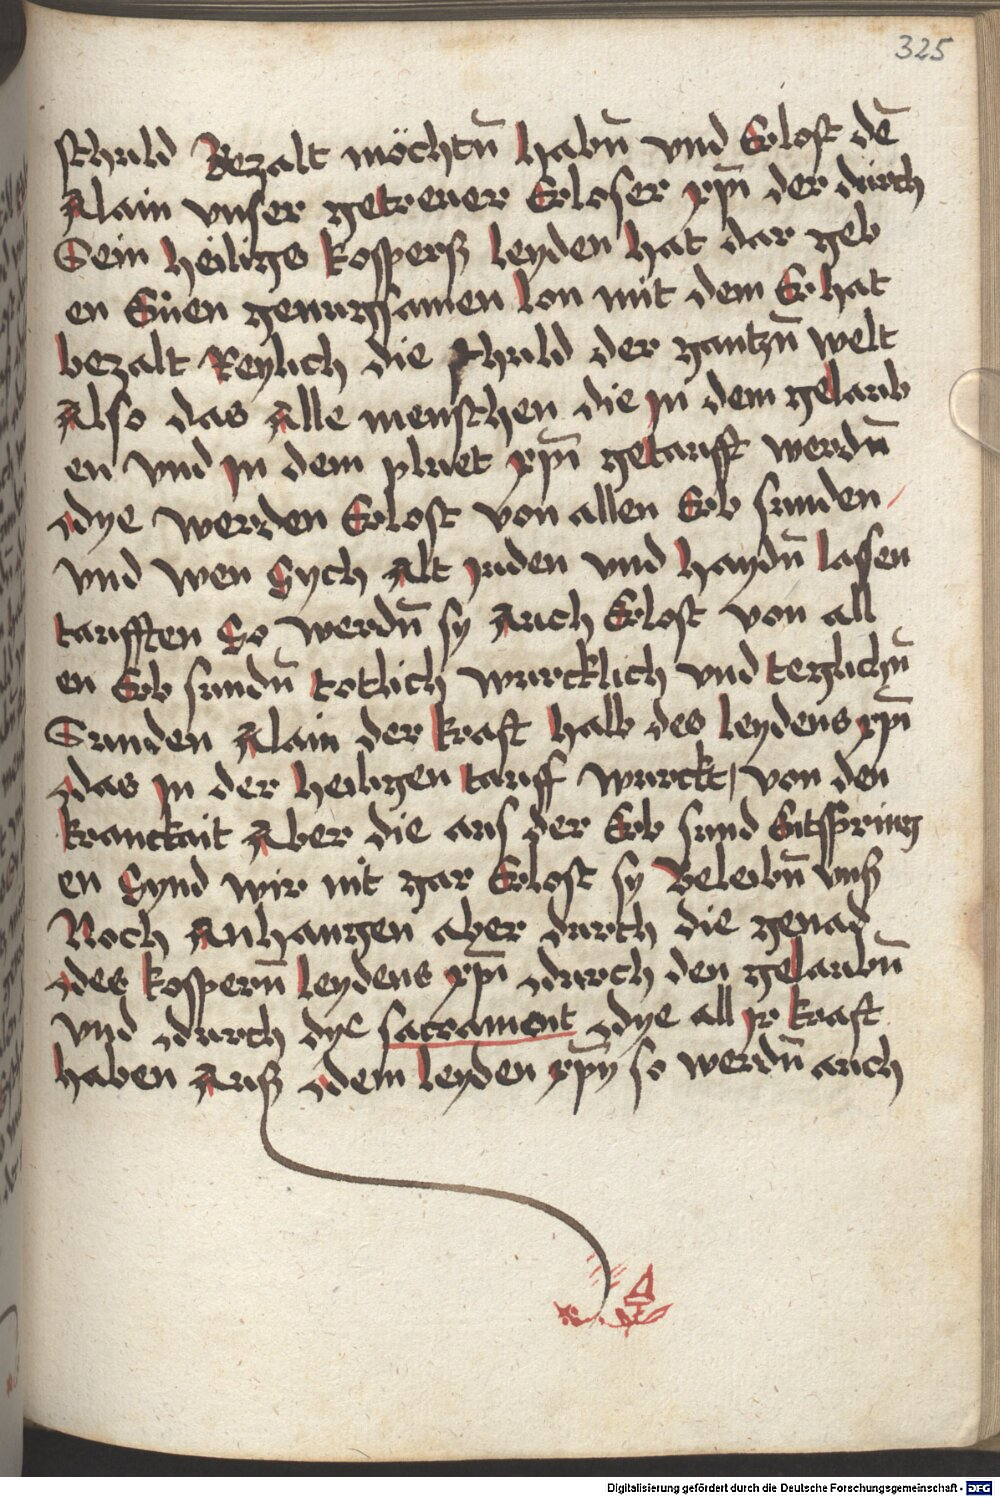 325
schuld Bezalt möchtn̄ habn̄ vnd Erlost dē
Alain vnser getrewer Erloser xp̄i der dürch
Sein heiligs kosperß leyden hat dar geb
en genugsamen lon mit dem Er hat
bezalt Reylich die schuld der gantzn̄ welt
Also das Alle menschen die jn dem gelaub
en vnd jn dem pluet xp̄i getaufft werdn̄
dye werden Erlost von allen Erb sunden /
vnd wen Sych Alt juden vnd haydn̄ lassen
taufften So werdn̄ sy Auch Erlost von all
en Erb sundn̄ totlich wurcklich vnd teglichn̄
Sunden Alain der kraft halb des leydens xp̄i
das jn der heiligen tauff wurckt / von den
kranckait Aber die aus der Erb sund Entspring
en Synd wir nit gar Erlost sy Beleibn̄ vnß
Noch Anhangen aber durch die genad
des kospern̄ leydens xp̄i durch den gelaubn̄
vnd durch dye sacrament dye all jr kraft
haben Auß dem leyden xp̄y so werdn̄ auch
Digitalisierung gefördert durch die Deutsche Forschungsgemeinschaft - DFG